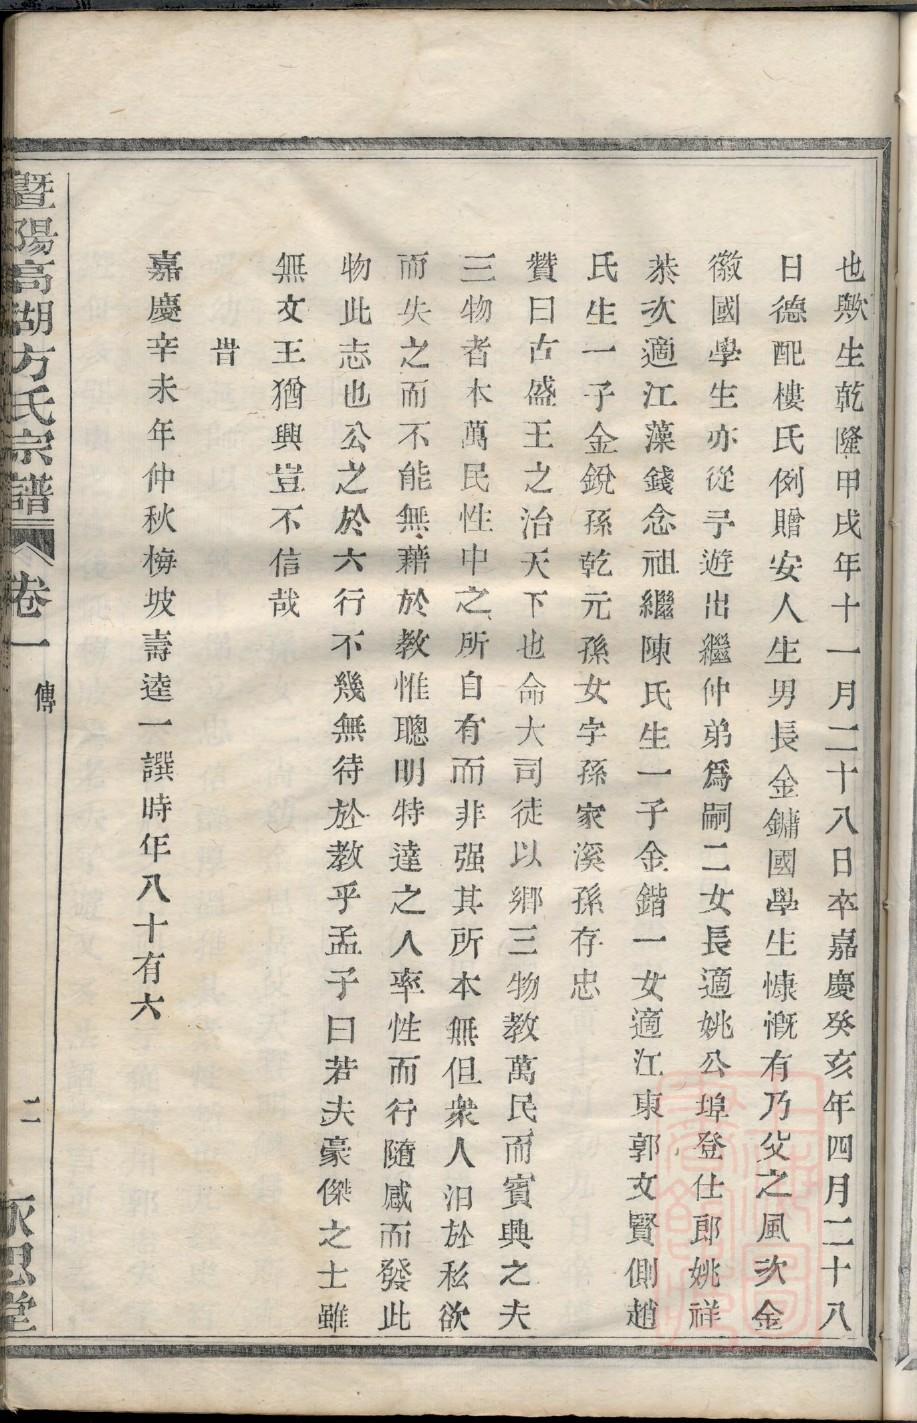 也歟生乾隆甲戌年十一月二十八日卒嘉慶癸亥年四月二十八
日德配樓氏例贈安人生男長金鏞國學生慷慨有乃父之風次金
徽國學生亦從予遊出繼仲弟爲嗣二女長適姚公埠登仕郎姚祥
恭次適江藻錢念祖繼陳氏生一子金鍇一女適江東郭文賢側趙
氏生一子金銳孫乾元孫女字孫家溪孫存忠
贊曰古盛王之治天下也命大司徒以鄉三物教萬民而賓興之夫
三物者本萬民性中之所自有而非强其所本無但衆人汨於私欲
而失之而不能無藉於教惟聰明特達之人率性而行隨感而發此
物此志也公之於六行不幾無待於教乎孟子曰若夫豪傑之士雖
無文王猶興豈不信哉
旹
嘉慶辛未年仲秋梅坡壽逵一譔時年八十有六
暨陽高湖方氏宗譜 卷一 傳 二 永思堂